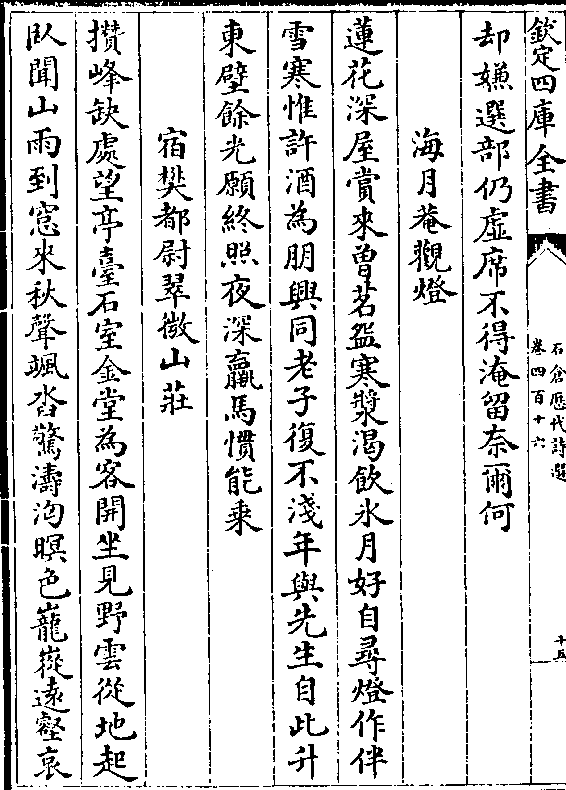 欽定四庫全書
石倉歷代詩選
卷四百十六
十五
却嫌選部仍虛席不得淹留奈爾何
海月菴觀燈
蓮花深屋賞來曾茗盌寒漿渴飲氷月好自尋燈作伴
雪寒惟許酒為朋興同老子復不淺年與先生自此升
東壁餘光願終照夜深羸馬慣能乗
宿樊都尉翠微山莊
攢峰缺處望亭臺石室金堂為客開坐見野雲從地起
臥聞山雨到窓來秋聲颯沓驚濤泃暝色巃嵸逺壑哀